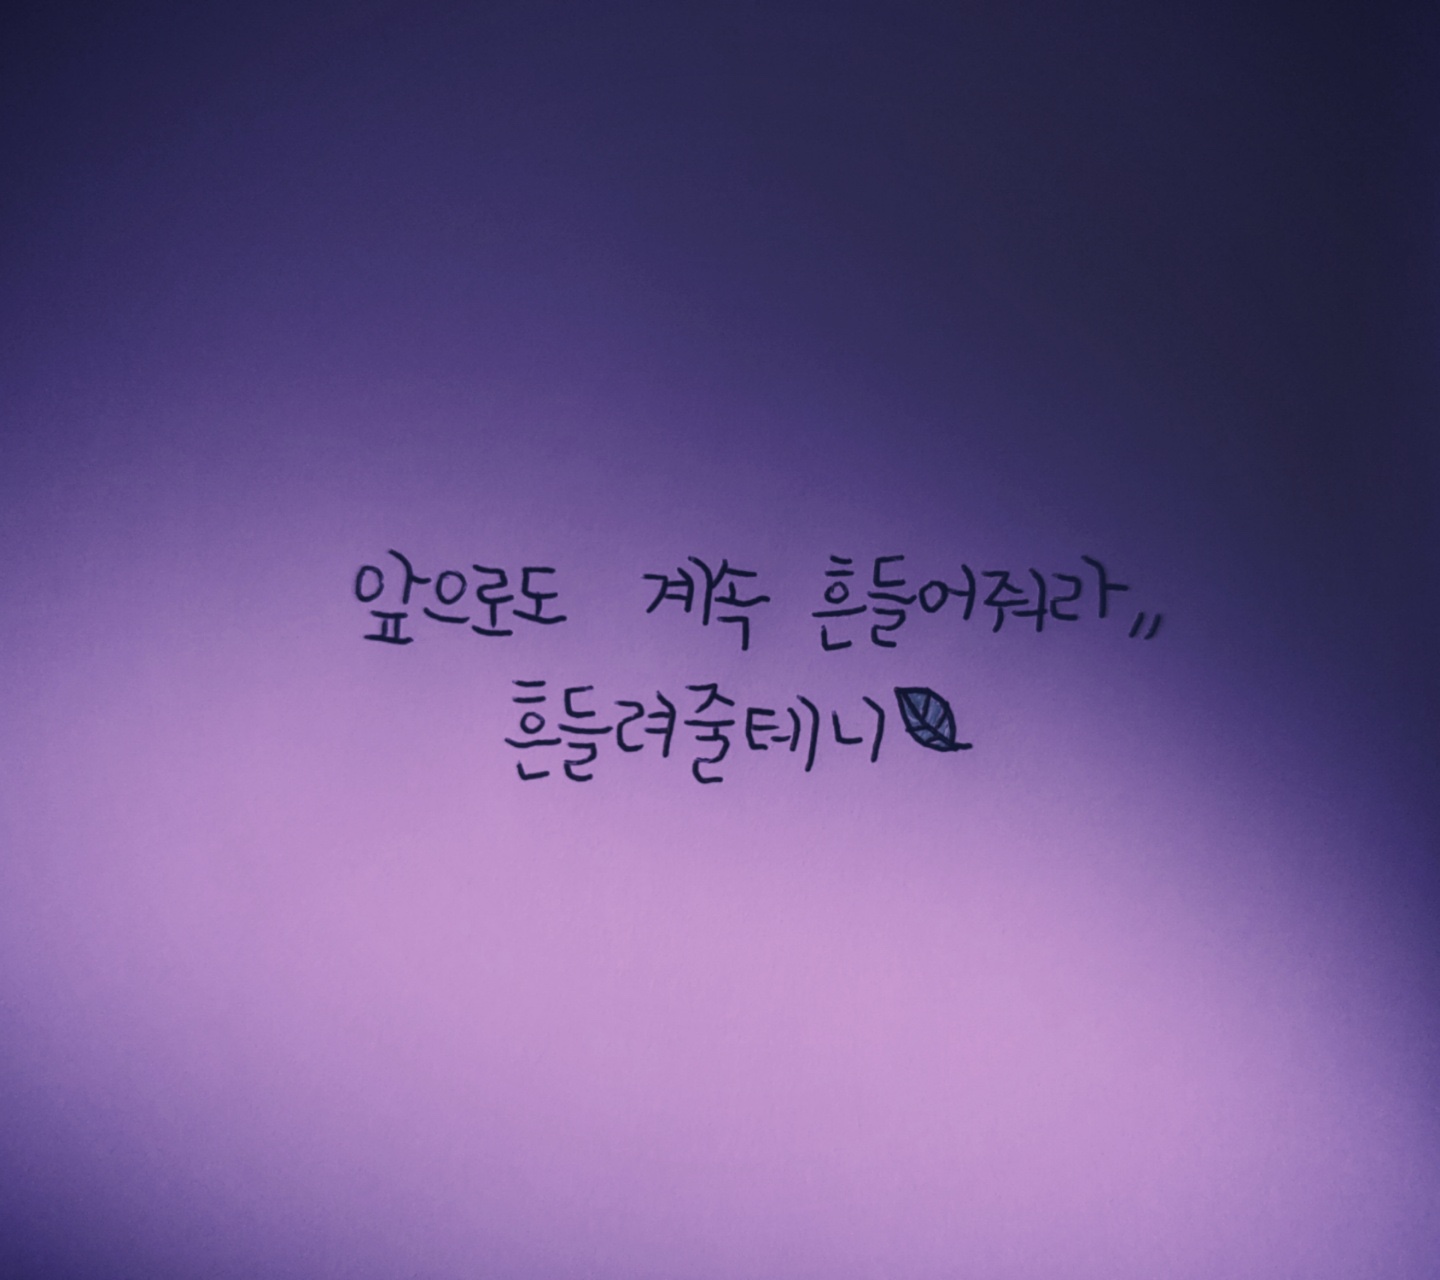 앞으로도 계속 흔들어줘라,,
흔들려줄테니